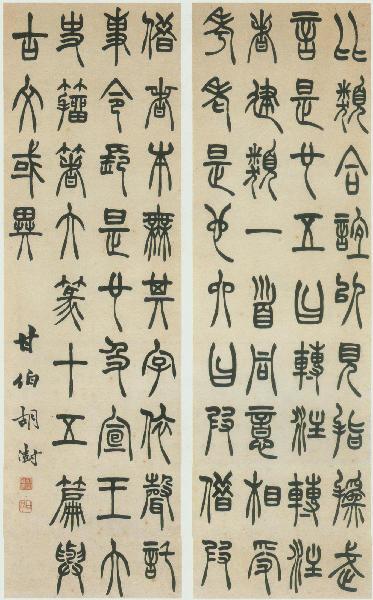 比類合誼以見指撝武
信是也五曰轉注轉注
者建類一首同意相受
考老是也六曰叚借叚
借者本無其字依聲託
事令長是也及宣王大
史籀著大篆十五篇與
古文或異
甘伯胡澍